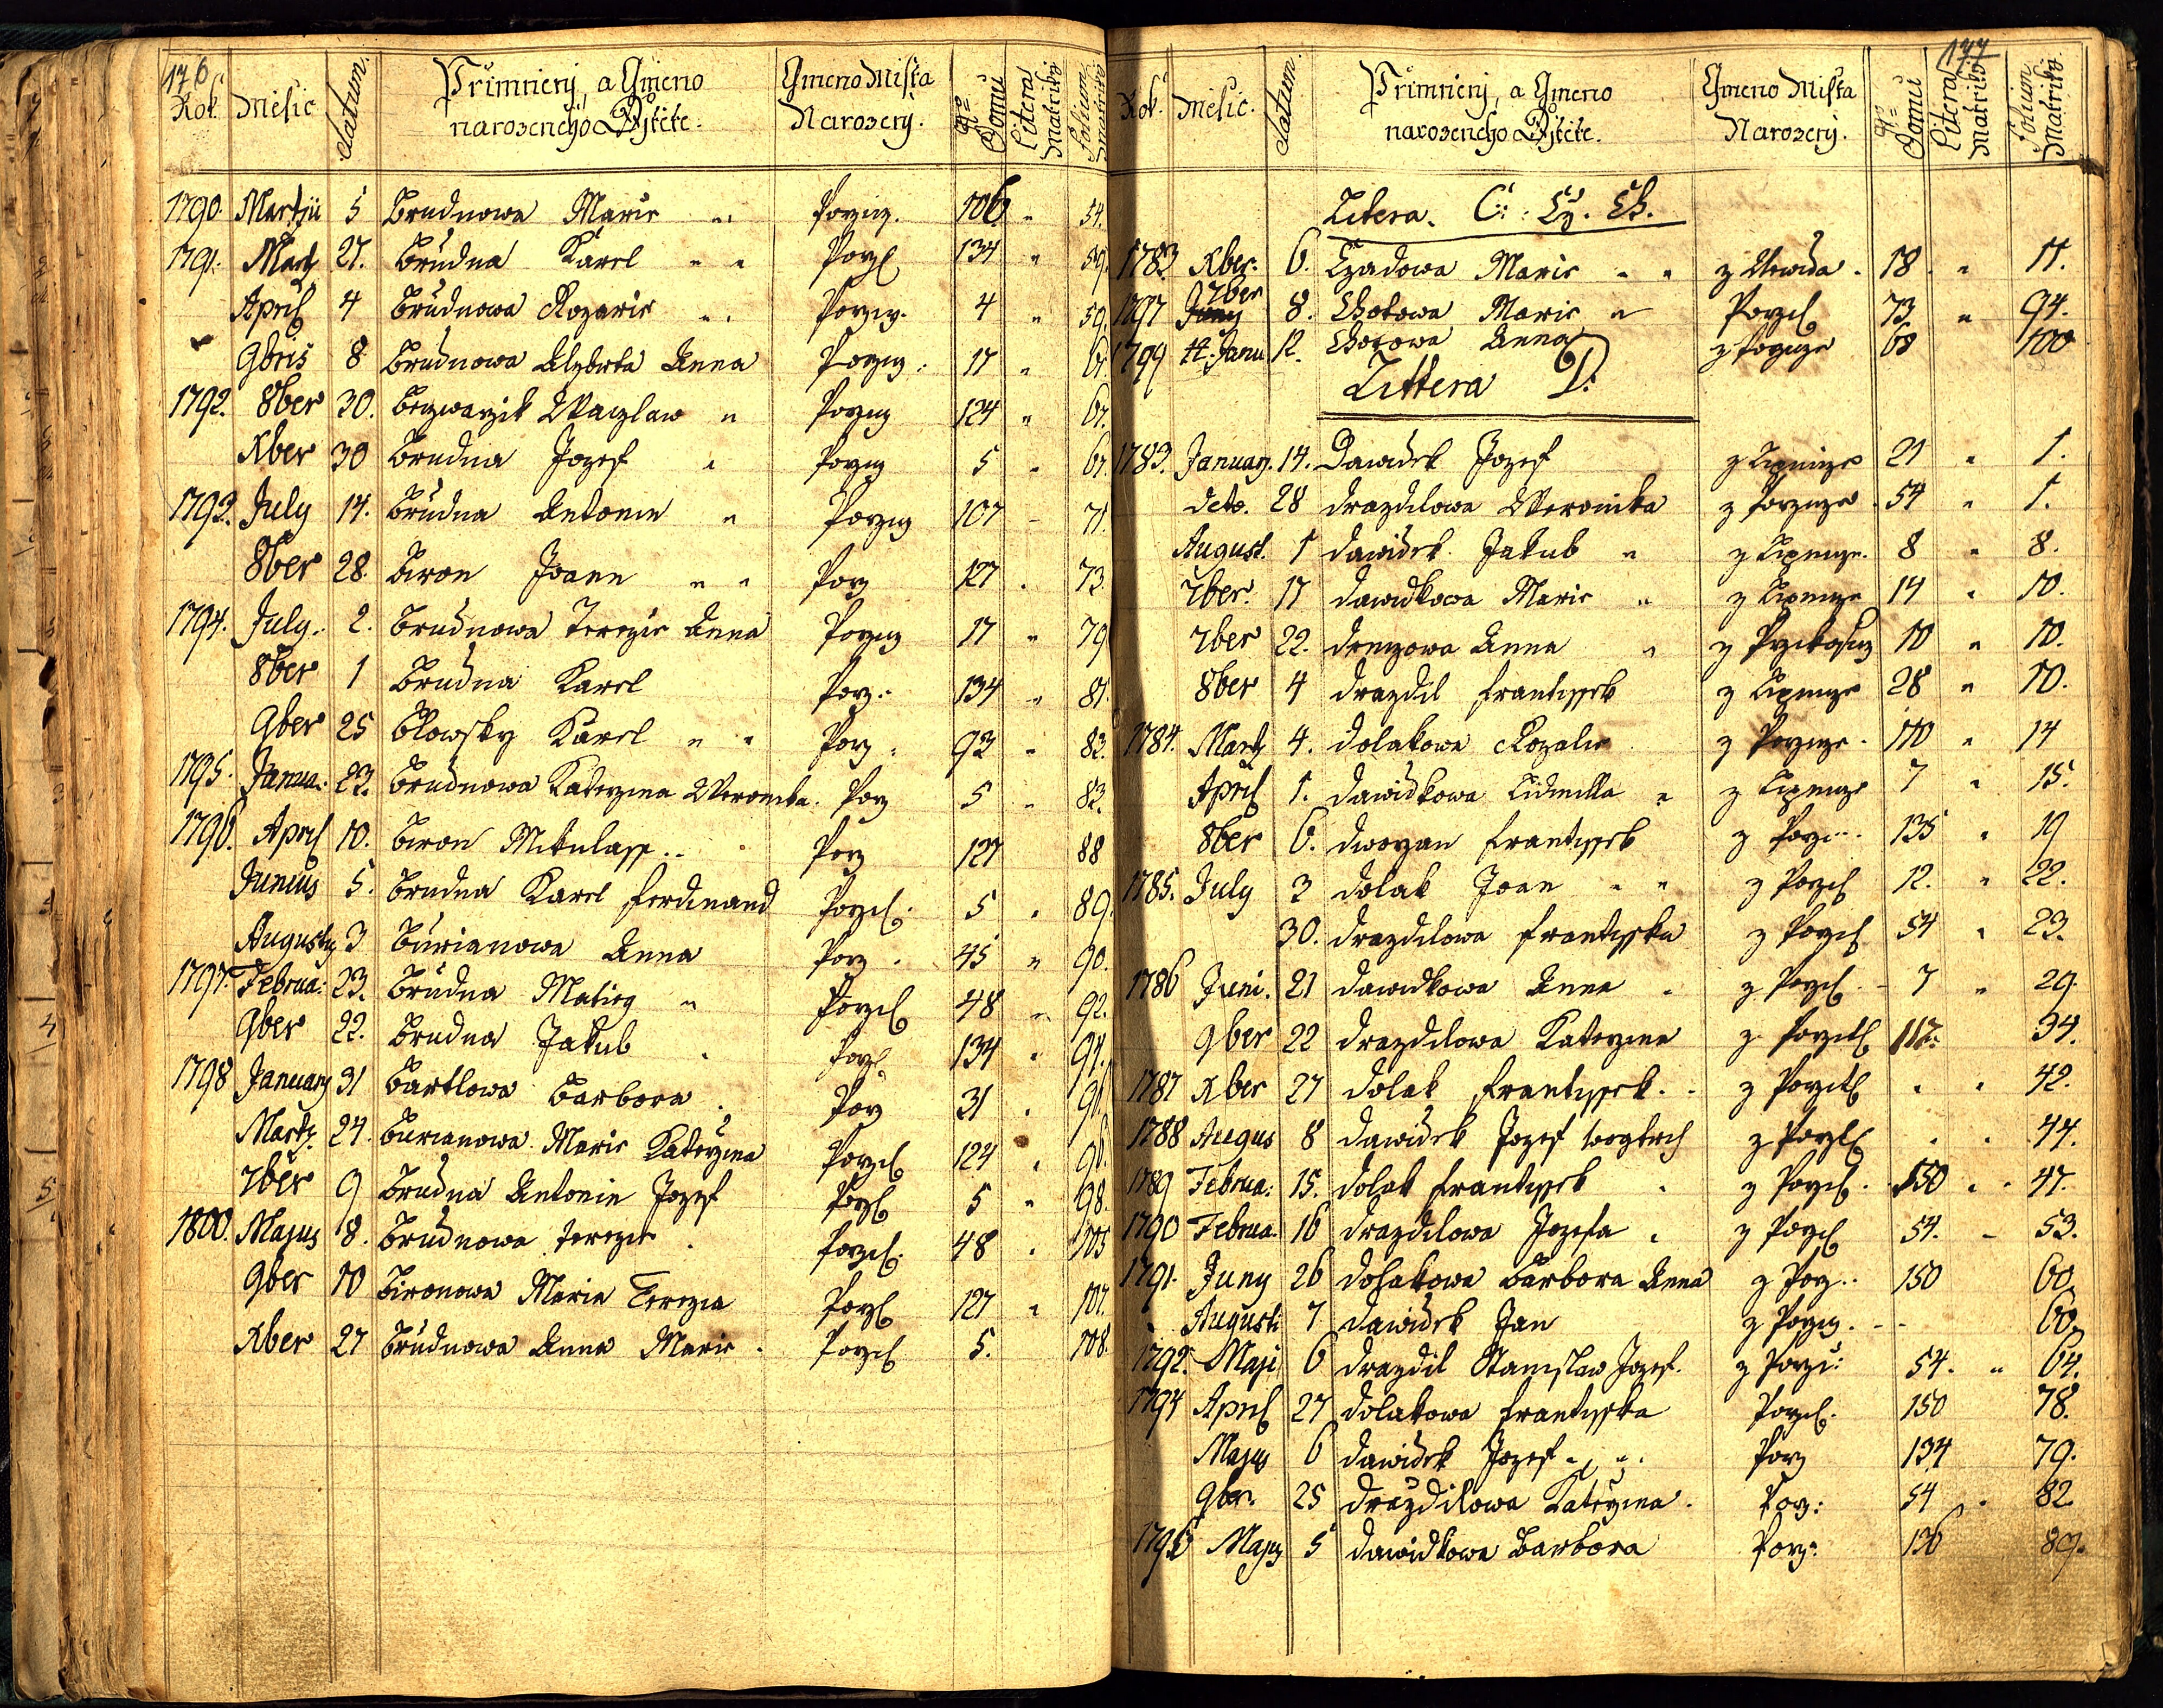 176
Rok. Mesic datum. Přimnienj, a Gmeno narozeneho Djtěte. Gmeno Mista Narozenj. No Domu Litera Matriki Folium Matriki
1790. Martii 5 Brudnowa Marie " Porziz. 106 " 54.
1791. Marty 27. Brudna Karel " " Porz 134 " 59.
April 4 Brudnowa Rozarie " Porziz. 4 " 59.
9bris 8 Brudnowa Alzbieta Anna Porziz. 17 " 61.
1792. 8ber 30. Bezwarzik Waczlaw " Porziz 124 " 67.
Xber 30 Brudna Jozef " Porziz 5 " 67.
1793. July 14. Brudna Antonin " Porziz 107 - 71.
8ber 28. Biron Joann " " Porz 127 . 73.
1794. July. 2. Brudnowa Terezie Anna Porziz 17 " 79
8ber 1 Brudna Karel Porz. 134 " 81.
9ber 25 Blowsky Karel " " Porz. 93 " 83.
1795. Janua. 23. Brudnowa Katerzina Weronika. Porz 5 " 83.
1796. April 10. Biron Mikulass .. Porz 127 88
Junius 5. Brudna Karel Ferdinand Porzil. 5 . 89.
Augusty 3 Burianowa Anna Porz. 45 " 90.
1797. Februa: 23. Brudna Matieg " Porzil 48 " 92.
9ber 22. Brudna Jakub . Porz 134 " 94.
1798 January 31 Bartlowa Barbora . Porz 31 . 96
Marty. 24. Burianowa Marie Katerzina Porzil 124 . 96.
7ber 9 Brudna Antonin Jozef Porzil 5 " 98.
1800. Majus 8. Brudnowa Terezie . Porzil. 48 . 105
9ber 10 Bironowa Maria Terezia Porzil 127 " 107.
Xber 27 Brudnowa Anna Marie . Porzil 5. 108.
177
Rok. Mesic. datum. Přimnienj, a Gmeno narozeneho Djtěte. Gmeno Mista Narozenj. No Domu Litera Matriki Folium Matriki.
Litera. C: Cž. Ch.
1783. Xber. 6. Czadowa Marie " " z Ujezda . 18 . " 11.
1797 7ber 8. Chotowa Marie " Porzil 73 " 94.
1799 Janu. 12. Chotowa Anna z Porzize 68 100
Littera D:
1783. January. 14. Dawidek Jozef z Lipnize 21 " 1.
deto. 28 drazdilowa Weronika z Porzize . 54 " 1.
August. 1 dawidek Jakub " z Lipnize. 8 " 8.
7ber. 17 dawidkowa Marie " z Lipnize 14 " 10.
7ber 22. Anna " z 10 " 10.
8ber 4 drazdil Frantissek z Lipnize 28 " 10.
1784. Marty 4. dolakowa Rozalie z Porzize . 110 " 14
April 1. dawidkowa Lidmilla " z Lipnize 7 " 15.
8ber 6. dworzan Frantissek z Porzi. 135 " 19
1785. July 3 dolak Joan " " z Porzil 12. " 22.
30. drazdilowa Frantisska z Porzil 54 " 23.
1786 Juni. 21 dawidkowa Anna . z Porzil. - 7 " 29.
9ber 22 drazdilowa Katerzina z Porzitz 112. 34.
1787 Xber 27 dolak Frantissek. - z Porzitz . . 42.
1788 Augus 8 dawidek Jozef Wogtech z Porzil . . 44.
1789 Februa: 15. dolak Frantissek . z Porzil . 150 . . 47.
1790 Februa. 16 drazdilowa Jozefa . z Porzil 54. - 53.
1791. Juny 26 dolakowa Barbora Anna z Porz.. 150 60.
" Augusti 7 dawidek Jan z Porziz. - - 60.
1792. Maji 6 drazdil Stanislaw Jozef. z Porzi: 54. " 64.
1794 April 27 dolakowa Frantisska Porzil. 150 78.
Majus 6 dawidek Jozef " " . Porz 134 79.
9ber. 25 drazdilowa Katerzina. Porz: 54 . 82.
1796 Majus 5 dawidkowa Barbora Porz: 136 89.